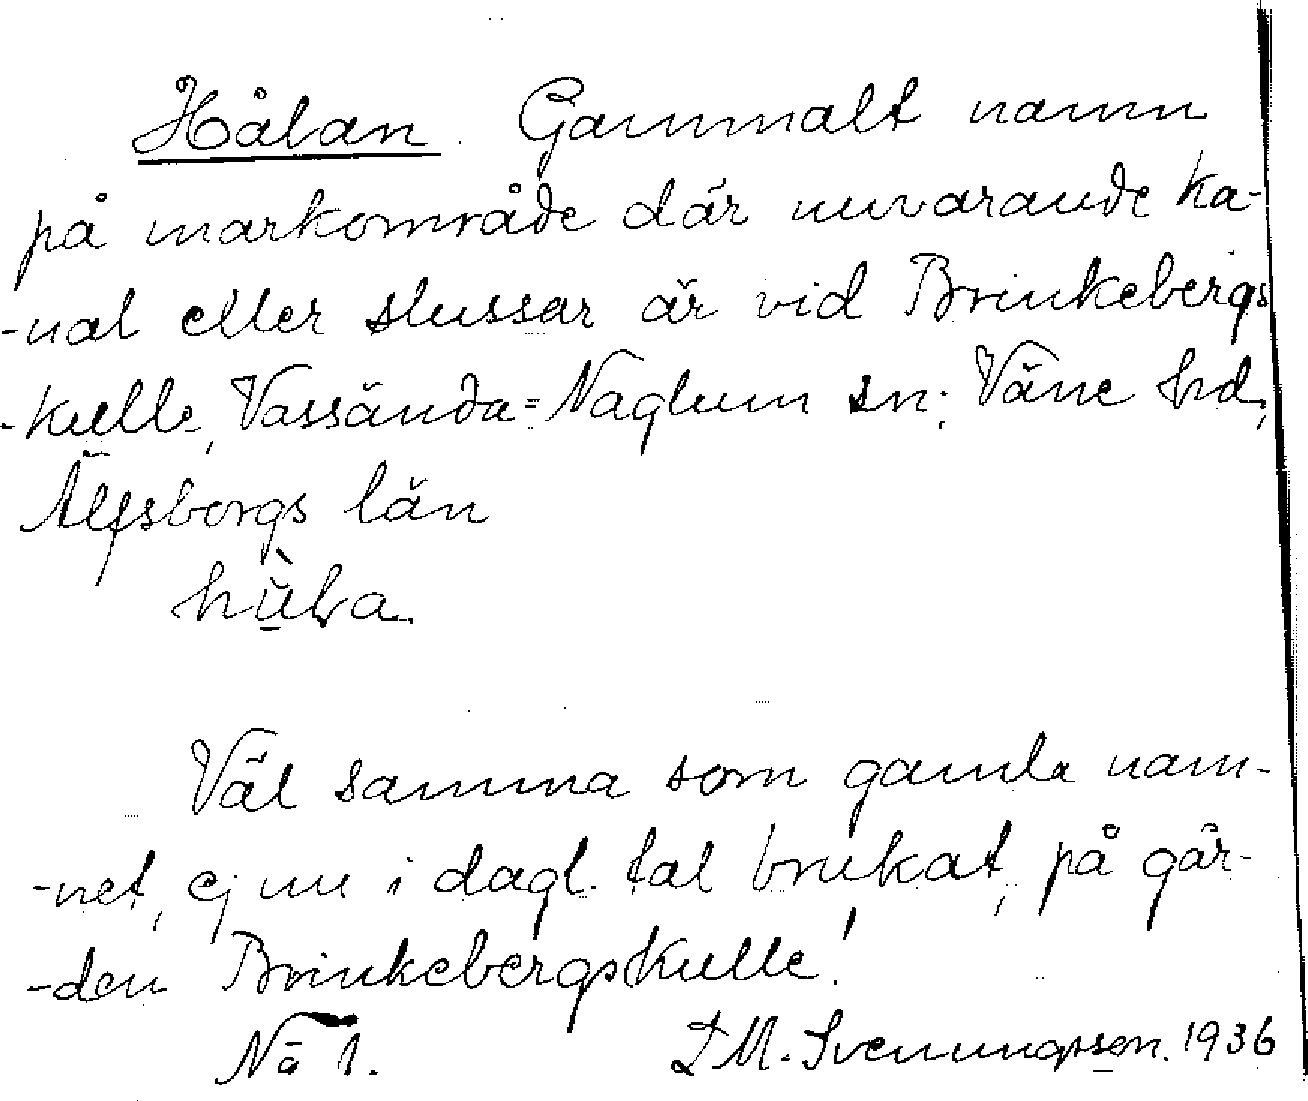 Hålan. Gammalt namn
på markområde där nuvarande ka-
-nal eller slussar är vid Brinkebergs
-kulle, Vassända=Naglum sn; Väne hd,
Älfsborgs län
hùla.
Väl samma som gamla nam-
-net, ej nu i dagl. tal brukat, på går-
-den Brinkebergskulle!
No 1. I M. Svenungsson. 1936